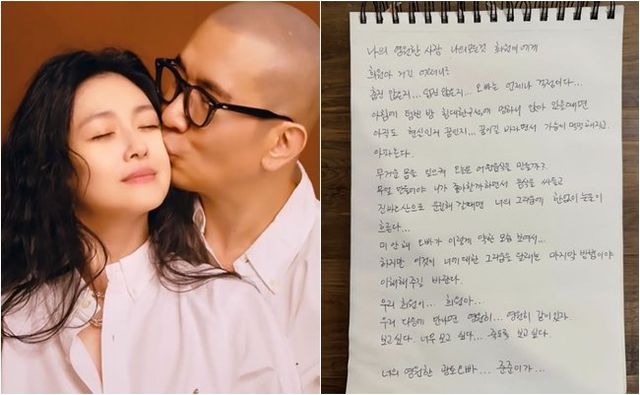 나의 영원한 사랑 나의모든것 희원에게
희원아 거긴 어떠니?
춥진 않은지... 덥진 않은지... 오빠는 언제나 걱정이다...
아침에 텅빈 방 침대한구석에 멍하니 앉아 있을때면
아직도 현실인지 꿈인지... 꿈이길 바라면서 가슴이 먹먹해지고
아파온다.
무거운 몸을 일으켜 오늘도 어떤음식을 만들까?
무얼 만들어야 네가 좋아할까하면서 음식을 싸들고
진바오산으로 운전해 갈때면 너의 그리움에 한없이 눈물이
흐른다...
미안해 오빠가 이렇게 약한 모습 보여서...
하지만 이것이 너에 대한 그리움을 달래는 마지막 방법이야
이해해주길 바란다.
우리 희원이... 희원아...
우리 다음에 만나면 영원히... 영원히 같이있자
보고싶다. 너무 보고 싶다... 죽도록 보고 싶다.
너의 영원한 오빠... 준준이가...